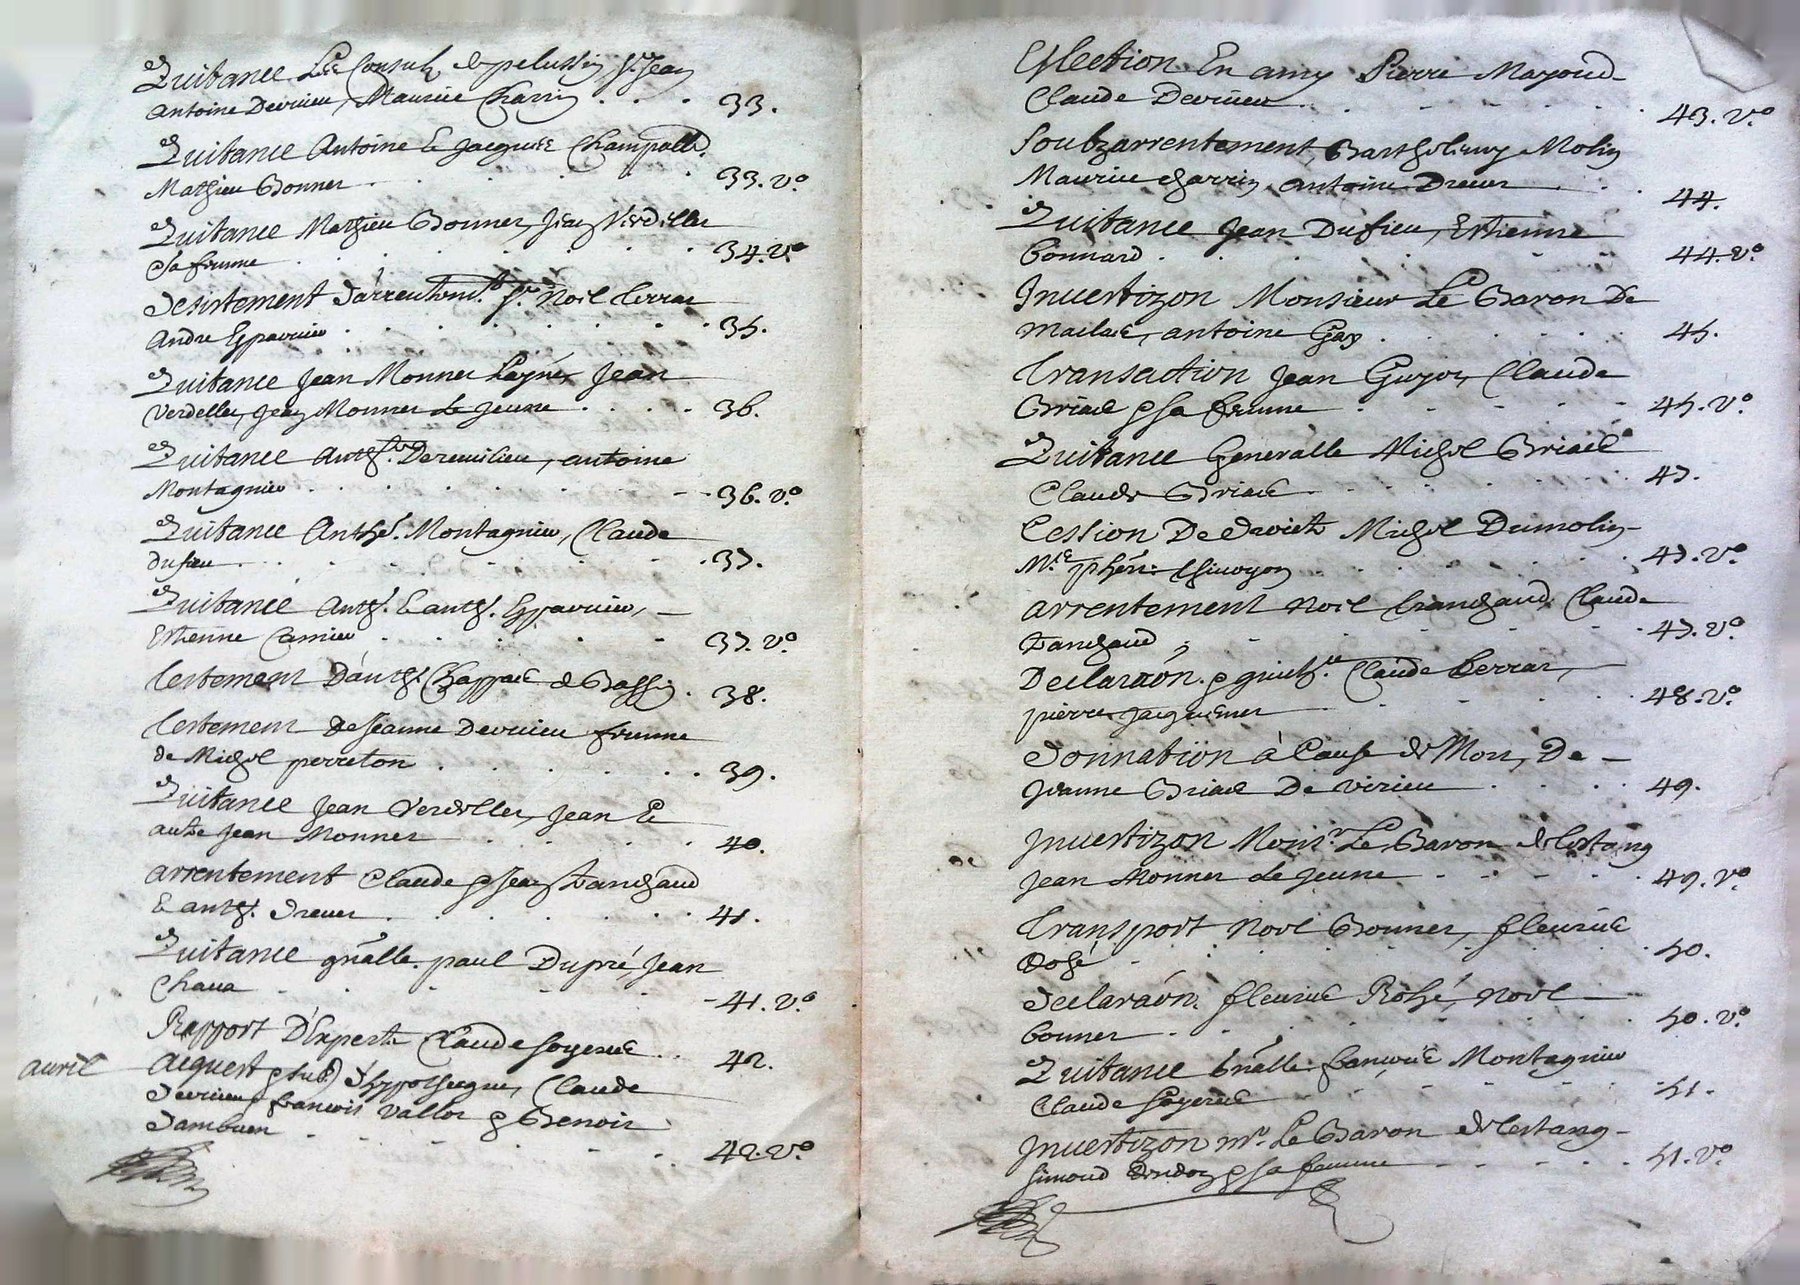 Quitance Les Consuls de pelussin Sr. Jean
Antoine Devirieu, Maurice Charrin . . . 33.
Quitance Antoine & Jacques Champalle
Mathieu Bonner . . . 33. vo.
Quitance Mathieu Bonner, Jean Verdellet
& sa femme . . . 34. vo.
desistement d'arrentemt. Sr. Noel Terrat
Andre Esparvier . . . 35.
Quitance Jean Monner Layné, Jean
Verdellet, Jean Monner Le Jeune . . . 36.
Quitance Anthe. Deremilieu, antoine
Montagnier . . . 36. vo.
Quitance Anthe. Montagnier, Claude
dufieu . . . 37.
Quitance Anth. & anth. Esparvier,
Estienne Camier . . . 37. vo.
Testement D'anth. Chappas de Bassin . 38.
Testement de Jeanne Devirieu femme
de Michel perreton . . . 39.
Quitance Jean Verdellet, Jean &
autre Jean Monner . . . 40.
arrentement Claude & Jean Tandaud
& anth. Drevet . . . 41.
Quitance gnalle. paul Dupré Jean
Chava . . . 41. vo.
Rapport D'Experts Claude Soyere . . 42.
avril acquest d'hyppotheque, Claude
devirieu francois Vallot & Benoit
Jambuen . . . 42. vo.
Eslection En amy Pierre Mayoud
Claude Devirieu . . . 43. vo.
Soubzarrentement, Bartholemy Molin
Maurice charrin, antoine Drevet . . . 44.
Quitance Jean Dufieu, Estienne
Bonnard . . . 44. vo.
Invertizon Monsieur Le Baron De
antoine Gay . . . 45.
Transaction Jean Guyot, Claude
Briad & sa femme . . . 45. vo.
Quitance Generalle Michel Briad
Claude Briad . . . 47.
Cession De droicts Michel Dumolin
. . . 47. vo.
arrentement Noel Claude
Tandaud . . . 47. vo.
Declaraon. Claude Terrat,
pierre Jacquemet . . . 48. vo.
donnation à Cause de Mort, De
Jeanne Briad De virieu . . . 49.
Invertizon Monsr. Le Baron de lestang
Jean Monner Le Jeune . . . 49. vo.
Transport Noel Bonner, fleurie
Rozé . . . 50.
declaraon. fleurie Rozé, Noel
bonner . . . 50. vo.
Quitance Gnalle. francois Montagnier
Claude Soyere . . . 51.
Invertizon Mr. Le Baron de lestang
Simond & sa femme . . . 51. vo.